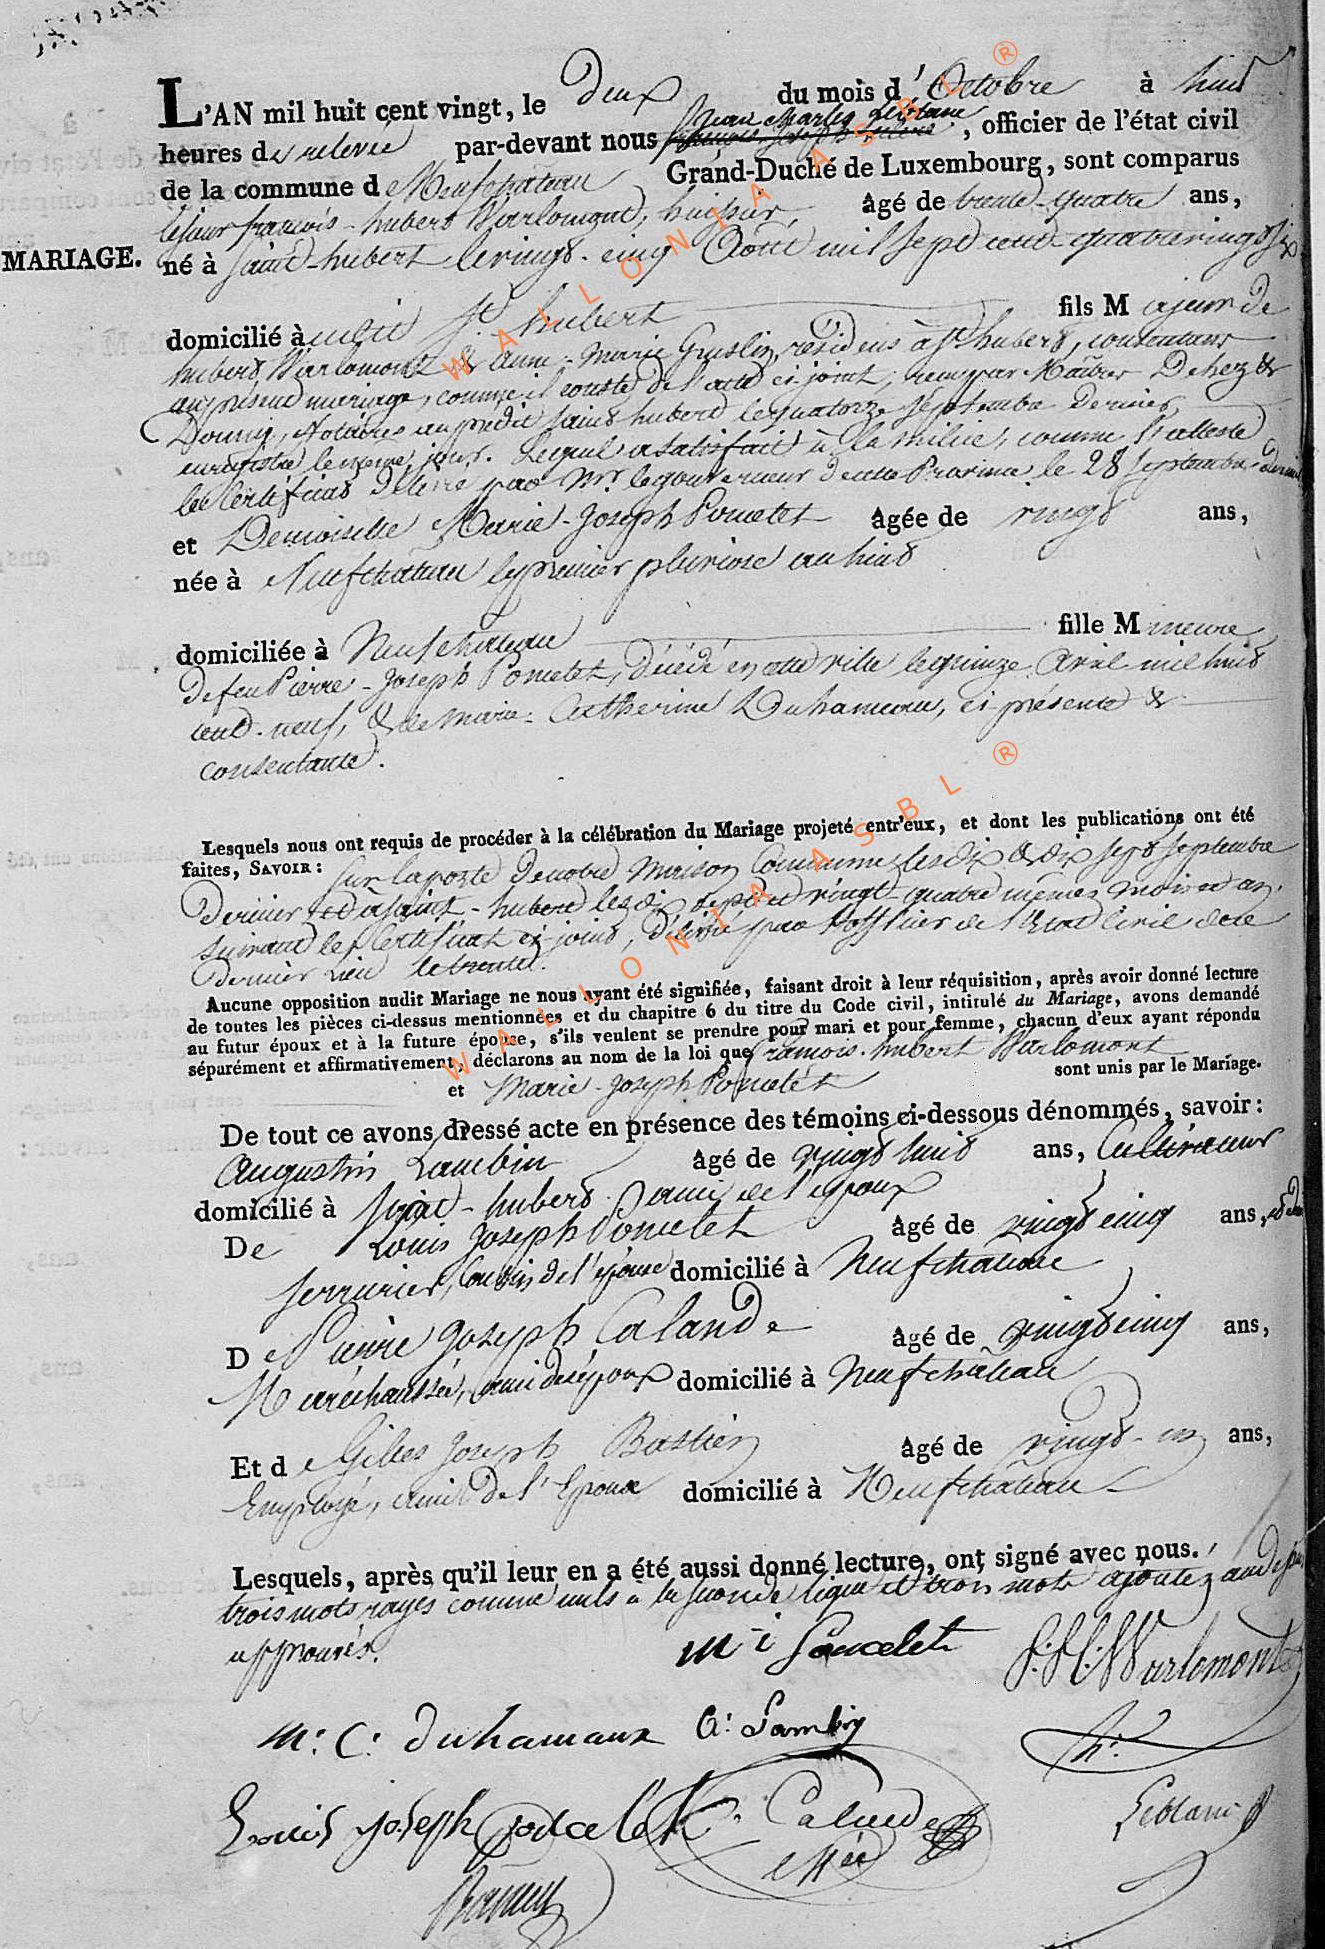 L'AN mil huit cent vingt, le deux du mois d'Octobre à huit
heures de relevée par-devant nous Jean Charles Leblanc, officier de l'état civil
de la commune de Neufchateau Grand-Duché de Luxembourg, sont comparus
le sieur françois-hubert Warlomont, huissier, âgé de trente-quatre ans,
MARIAGE.
né à saint-hubert le vingt-cinq Août mil sept cent quatrevingt six
domicilié audit St hubert fils Majeur de
hubert Warlomont & anne-Marie Guslin, résidens à St hubert, consentans
au présent mariage, comme il conste de l'acte ci-joint, reçu par Maîtres Dehez &
Doumy, Notaires au prédit saint hubert le quatorze septembre dernier,
enregistré le même jour. Lequel a satisfait à la milice, comme l'atteste
le Certificat délivré par Mr. le gouverneur de cette Province le 28 septembre dernier
et Demoiselle Marie-Joseph Poncelet âgée de vingt ans,
née à Neufchateau le premier pluviose an huit
domiciliée à Neufchateau fille Mineure
de feu Pierre-Joseph Poncelet, décédé en cette ville le quinze Avril mil huit
cent-neuf, & de Marie-Catherine Duhameau, ci présente &
consentante.
Lesquels nous ont requis de procéder à la célébration du Mariage projeté entr'eux, et dont les publications ont été
faites, SAVOIR : sur la porte de notre Maison Commune les dix & dix sept septembre
dernier et à saint-hubert les dix sept et vingt-quatre mêmes mois et an,
suivant le Certificat ci-joint, délivré par l'officier de l'Etat Civil de ce
dernier lieu le trente.
Aucune opposition audit Mariage ne nous ayant été signifiée, faisant droit à leur réquisition, après avoir donné lecture
de toutes les pièces ci-dessus mentionnées et du chapitre 6 du titre du Code civil, intitulé du Mariage, avons demandé
au futur époux et à la future épouse, s'ils veulent se prendre pour mari et pour femme, chacun d'eux ayant répondu
séparément et affirmativement, déclarons au nom de la loi que françois-hubert Warlomont
et Marie-Joseph Poncelet sont unis par le Mariage.
De tout ce avons dressé acte en présence des témoins ci-dessous dénommés, savoir :
Augustin Lambin âgé de vingt huit ans, Cultivateur
domicilié à saint-hubert, ami de l'époux
De Louis Joseph Poncelet âgé de vingt cinq ans,
serrurier, Cousin de l'épouse domicilié à Neufchateau
De Pierre Joseph Calande âgé de vingt cinq ans,
Maréchaussée, ami de l'époux domicilié à Neufchâteau
Et de Gilles Joseph Bastien âgé de vingt-un ans,
Employé, ami de l'Epoux domicilié à Neufchâteau
Lesquels, après qu'il leur en a été aussi donné lecture, ont signé avec nous.
trois mots rayés comme nuls à la seconde ligne et trois mots ajoutés au dessus
approuvés.
m i Poncelet F:H:Warlomont
m: C: duhamaux A: Lambin hr.
Louis joseph poncelet Calande Leblanc
WALLONIA ASBL ®
WALLONIA ASBL ®